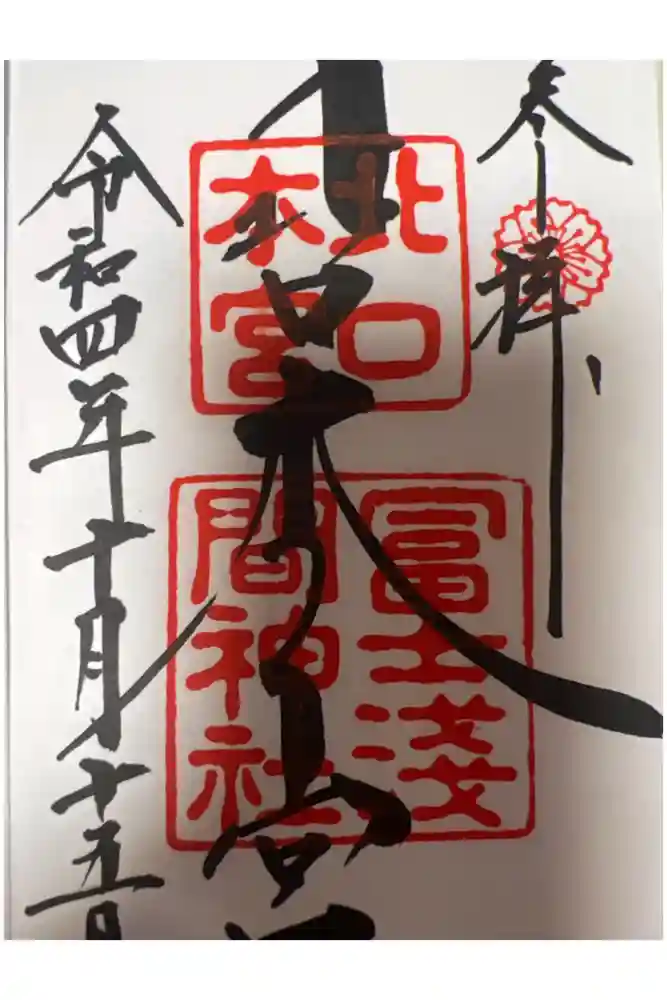 奉拝
北口
本宮
冨士浅
間神社
北口本宮
令和四年十月十五日